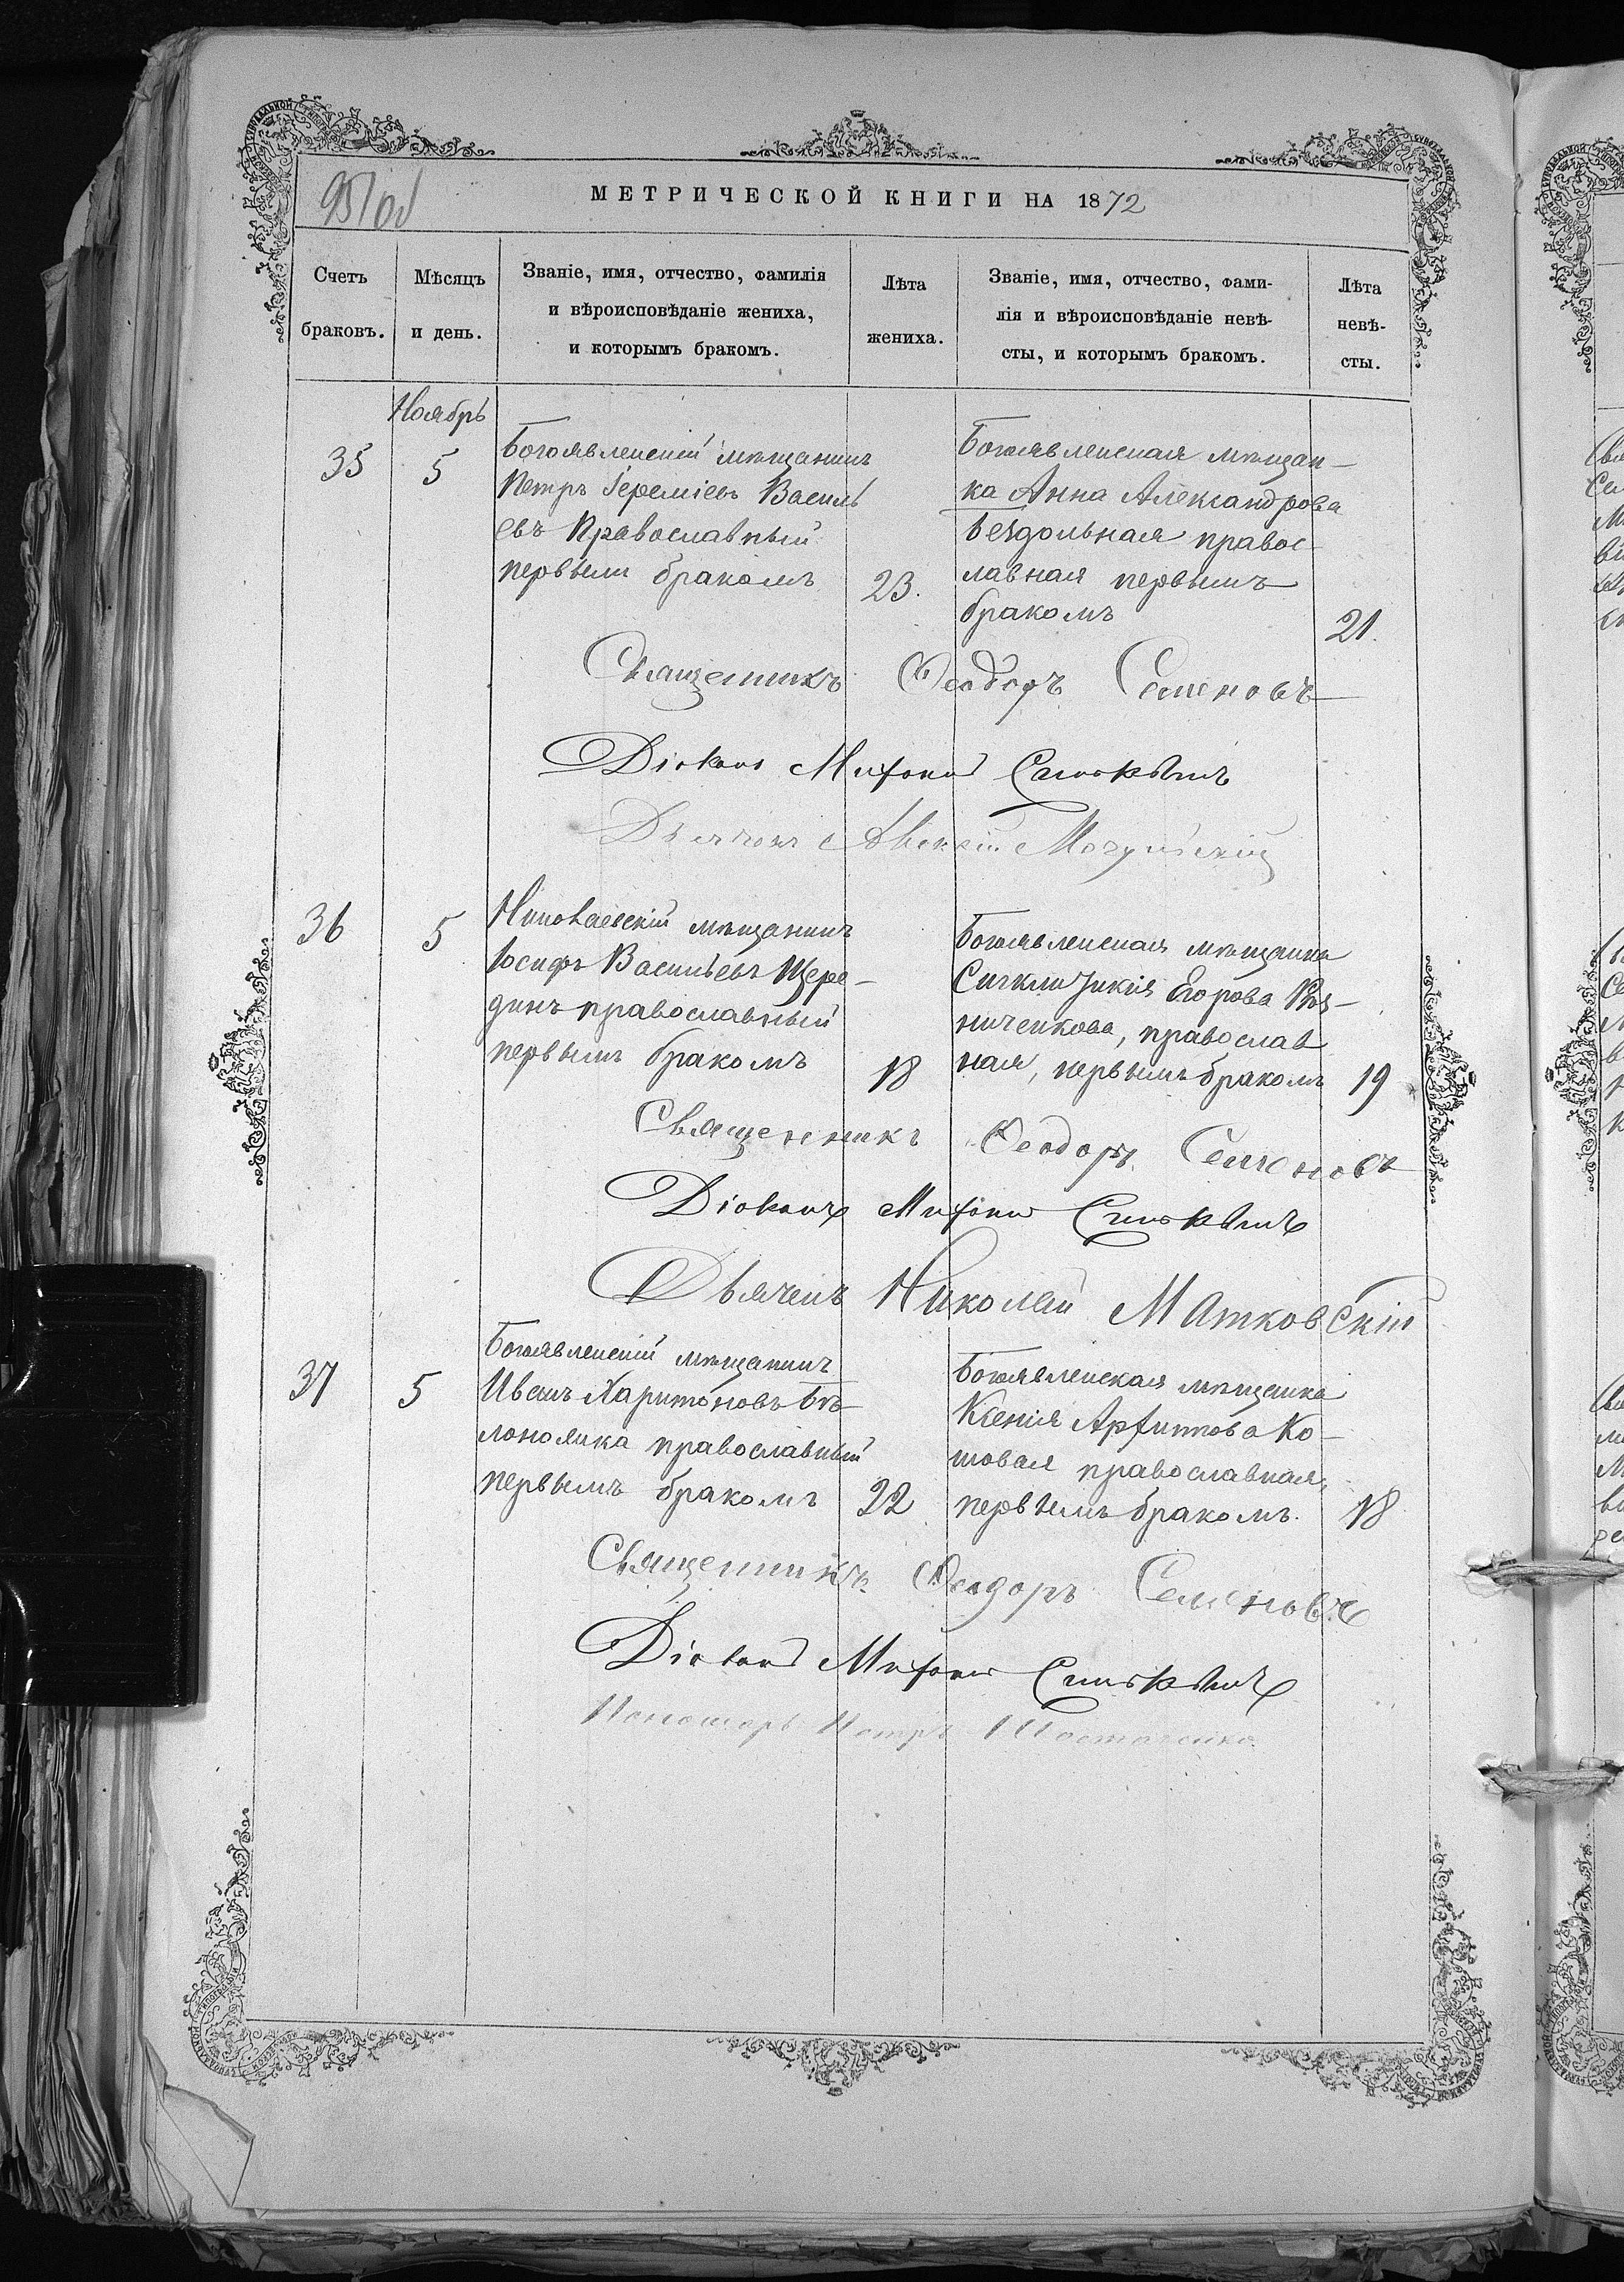 95 об
МЕТРИЧЕСКОЙ КНИГИ НА 1872
Счетъ браковъ.
Мѣсяцъ и день.
Званіе, имя, отчество, фамилія
и вѣроисповѣданіе жениха,
и которымъ бракомъ.
Лѣта жениха.
Званіе, имя, отчество, фами-
лія и вѣроисповѣданіе невѣ-
сты, и которымъ бракомъ.
Лѣта невѣ-
сты.
Ноябрь
35
5
Богоявленскій мѣщанинъ
Петръ Іереміевъ Василь
евъ Православный
первымъ бракомъ
23.
Богоявленская мѣщан-
ка Анна Александрова
Бездольная правос-
лавная первымъ
бракомъ
21.
Священникъ Ѳеодоръ Семеновъ
Діаконъ
Дьячокъ
36
5
Николаевскій мѣщанинъ
Іосифъ Васильевъ Щере-
динъ православный
первымъ бракомъ
18
Богоявленская мѣщанка
Егорова
православ
ная, первымъ бракомъ
19
Священникъ Ѳеодоръ Семеновъ
Діаконъ
Дьячекъ Николай Матковскій
37
5
Богоявленскій мѣщанинъ
Иванъ Харитоновъ Бѣ-
православный
первымъ бракомъ
22
Богоявленская мѣщанка
Ксенія Ко-
товая православная,
первымъ бракомъ.
18
Священникъ Ѳеодоръ Семеновъ
Діаконъ
Пономарь Петръ